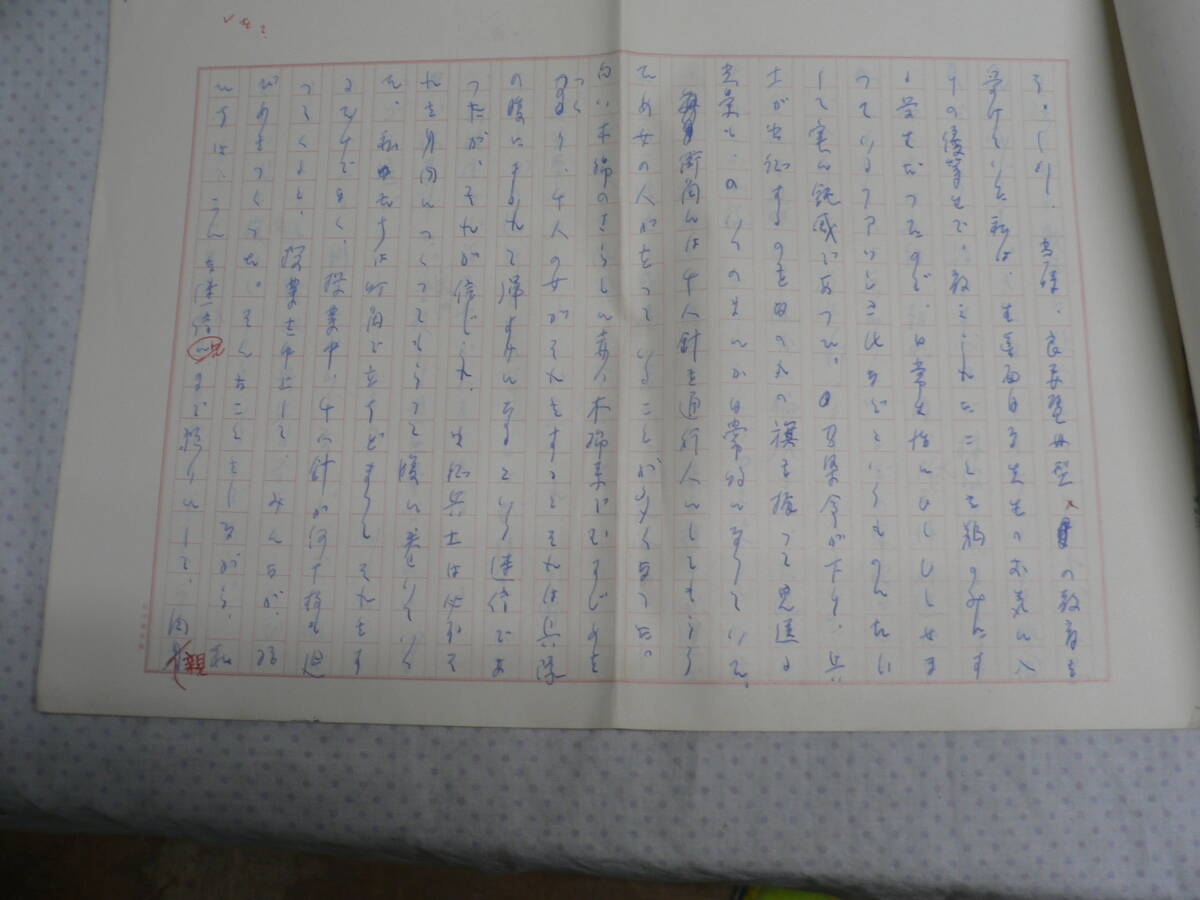 る。しかし、当時、良妻賢母型の教育を
受けていた私は、生真面目な先生のお気に入
りの優等生で、教えられたことを鵜のみにす
る学生だったので、日常生活にひしひしとせま
っているファッシズムなどというものにたい
して実に鈍感であった。召集令が下り、兵
士が出征するのを日の丸の旗を振って見送る
光景も、いくのまにか日常的になっていた。
街角には千人針を通行人にしてもらう
ため女の人が立っていることが多くなった。
白い木綿のさらしに赤い木綿糸でむすび目を
つくる、千人の女がそれをするとそれは兵隊
の腹にまかれて弾よけになるという迷信であ
ったが、それが信じられ、出征兵士は必ずそ
れを身内につくってもらって腹に巻いていく
。私たちは街角で立ちどまってそれをす
るだけでなく、授業中、千人針が何十枚も廻
ってくると、授業を中止して、みんなが、結
び目をつくった。そんなことをしながら、私
たちは、こんな迷信にまで頼りにして、肉親